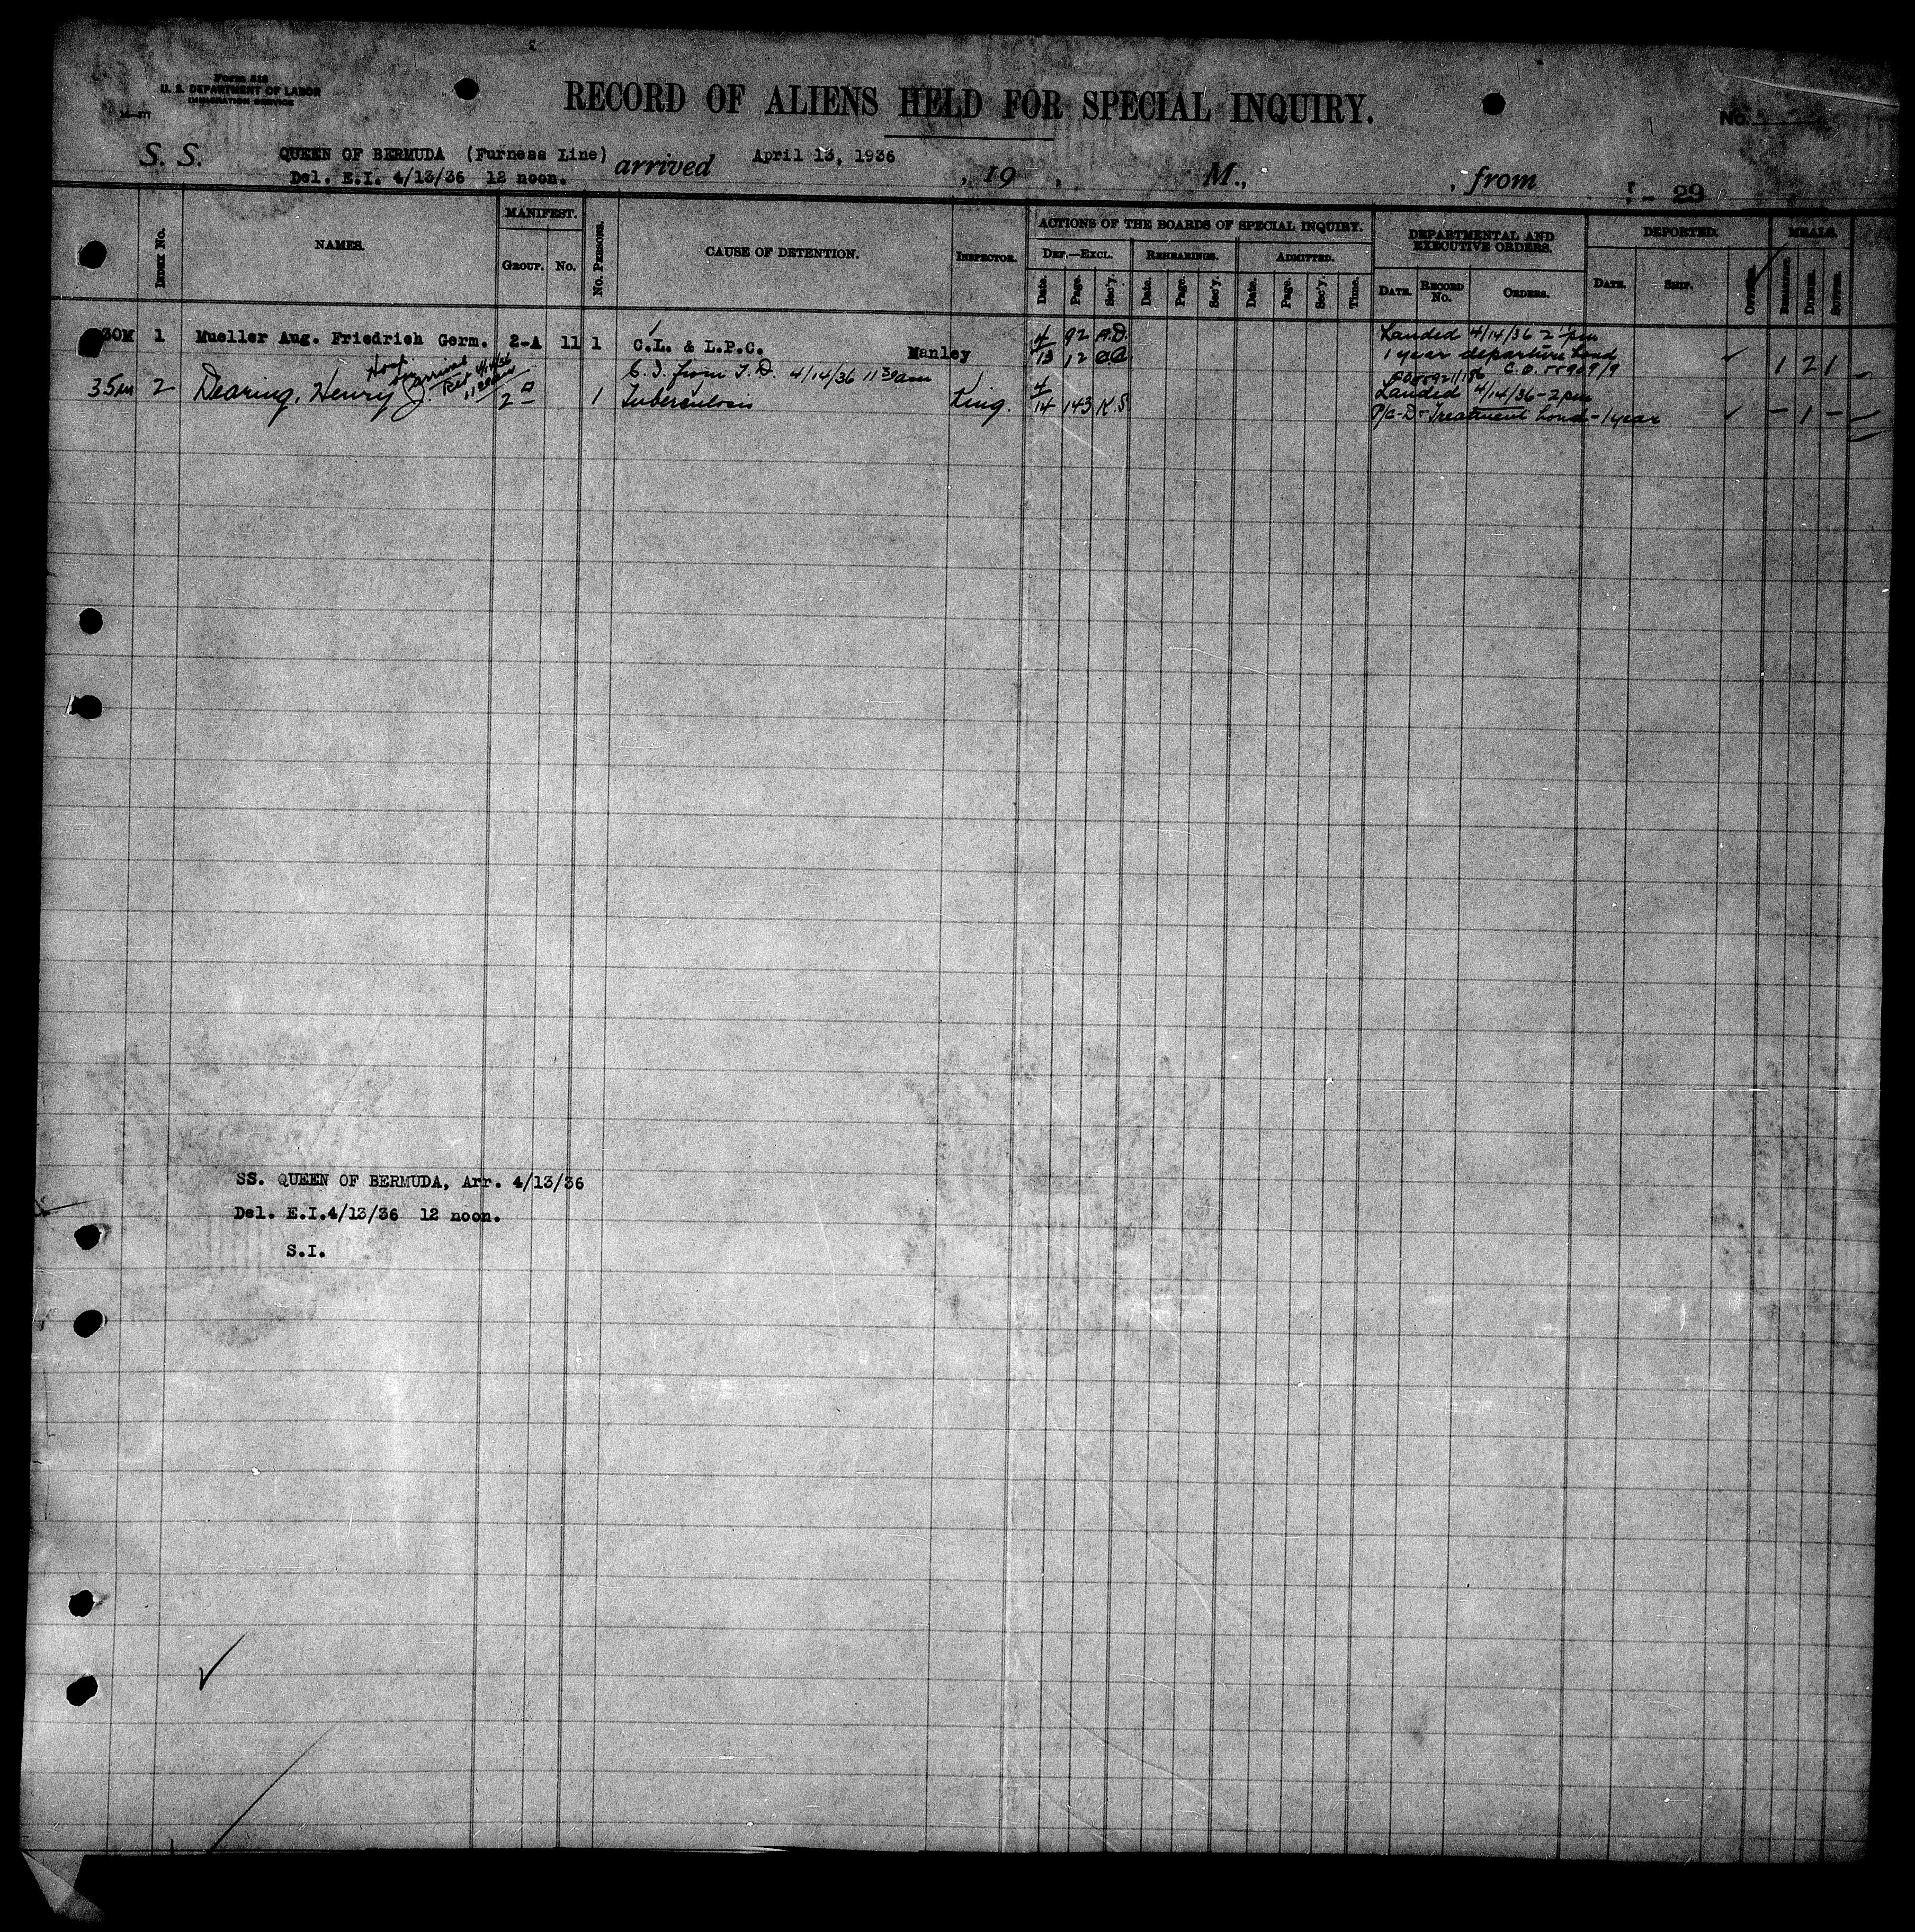 Form 518
U. S. DEPARTMENT OF LABOR
IMMIGRATION SERVICE
RECORD OF ALIENS HELD FOR SPECIAL INQUIRY.
No.
S. S. QUEEN OF BERMUDA (Furness Line) arrived April 13, 1936 , 19 , M., , from 29
Del. E.I. 4/13/36 12 noon.
INDEX NO. NAMES. MANIFEST. GROUP. NO. NO. PERSONS. CAUSE OF DETENTION. INSPECTOR. ACTIONS OF THE BOARDS OF SPECIAL INQUIRY. DEPARTMENTAL AND EXECUTIVE ORDERS. DEPORTED. MEALS.
DEF.—EXCL. REHEARINGS. ADMITTED.
Date. Page. Sec'y. Date. Page. Sec'y. Date. Page. Sec'y. Time. DATE. RECORD NO. ORDERS. DATE. SHIP. BREAKFAST. DINNER. SUPPER.
30M 1 Mueller Aug. Friedrich Germ. 2-A 11 1 C.L. & L.P.C. Manley 4/13 92 A.D. 12 Landed 4/14/36 2 pm
1 year departure bond
1 2 1
Hosp. on arrival Rel 4/14/36 11 30am
S.I. from T.D. 4/14/36 11 30am
35m 2 Dearing, Henry J. 2 1 Tuberculosis King. 4/14 143 K.S. Landed 4/14/36 - 2pm
P/C-D- Treatment bond - 1 year - 1 -
SS. QUEEN OF BERMUDA, Arr. 4/13/36
Del. E.I.4/13/36 12 noon.
S.I.